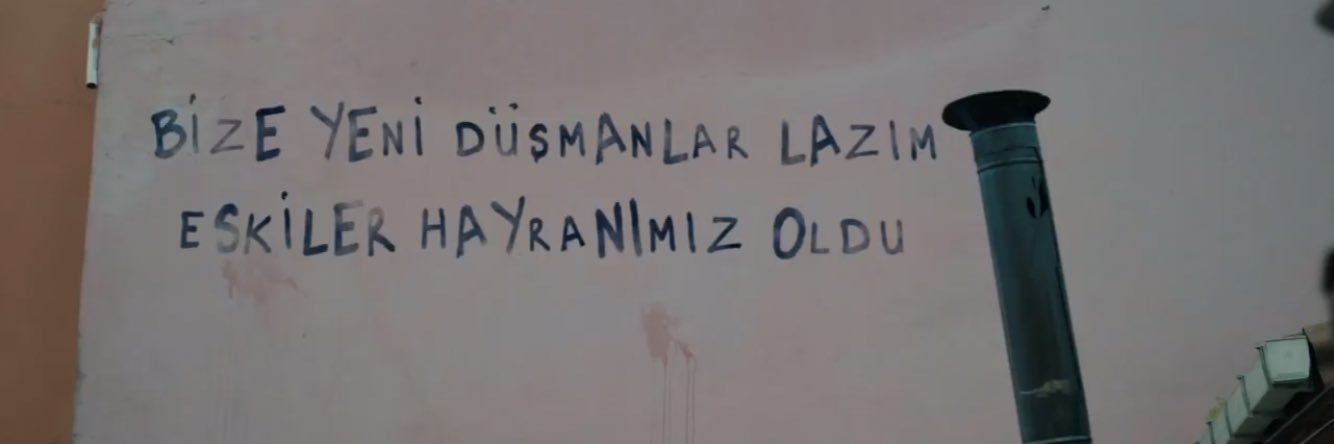 BİZE YENİ DÜŞMANLAR LAZIM
ESKİLER HAYRANIMIZ OLDU